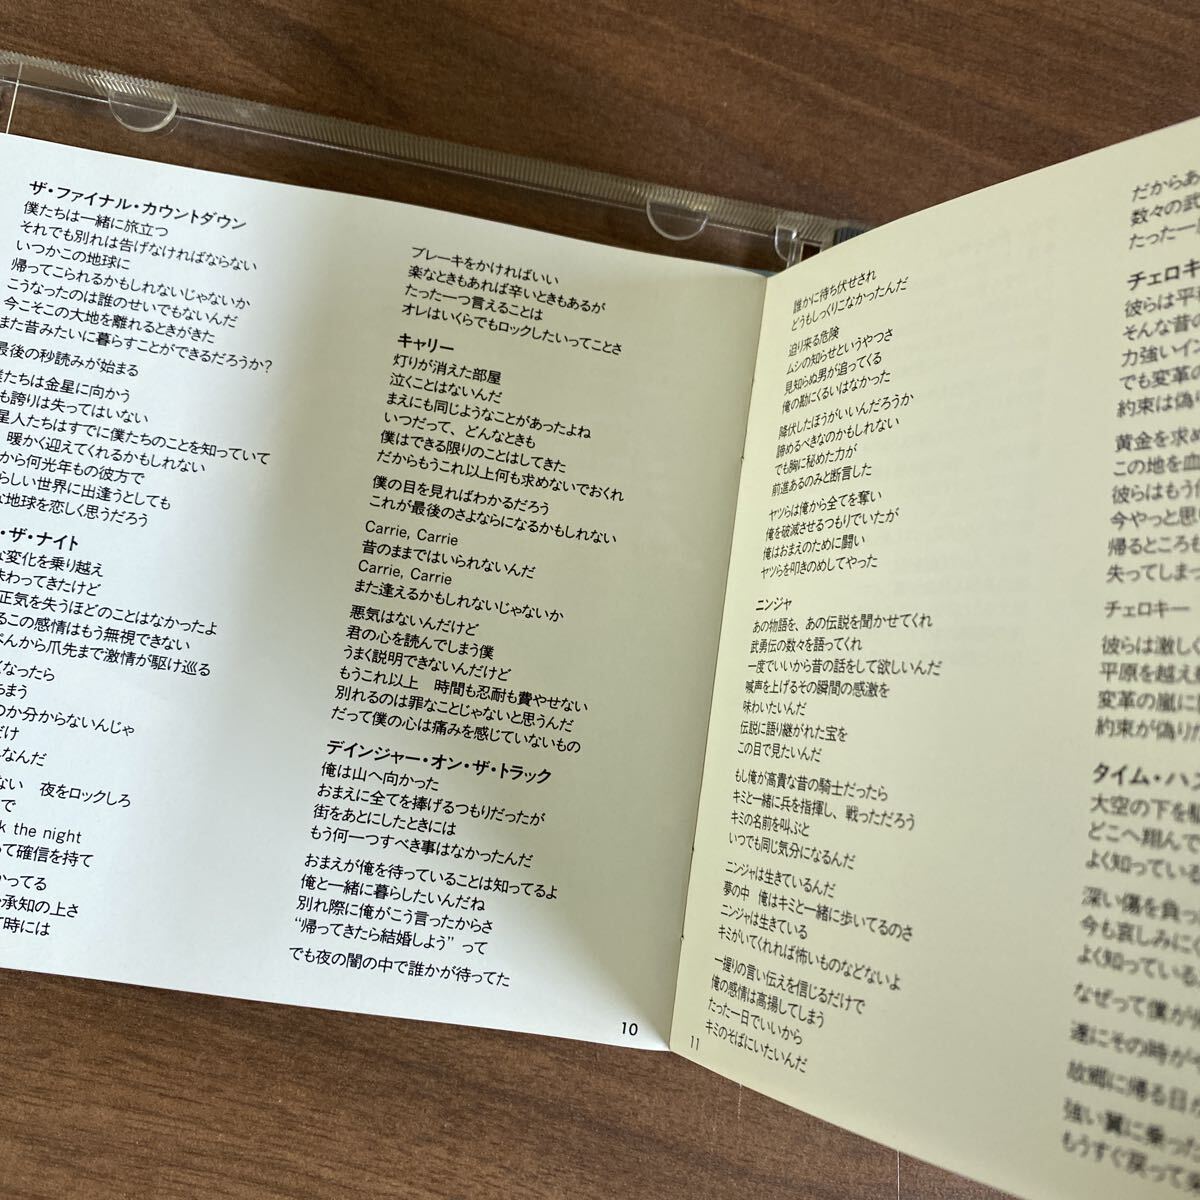 ザ・ファイナル・カウントダウン
僕たちは一緒に旅立つ
それでも別れは告げなければならない
いつかこの地球に
帰ってこられるかもしれないじゃないか
こうなったのは誰のせいでもないんだ
今こそこの大地を離れるときがきた
また昔みたいに暮らすことができるだろうか?
最後の秒読みが始まる
たちは金星に向かう
も誇りは失ってはいない
星人たちはすでに僕たちのことを知っていて
暖かく迎えてくれるかもしれない
から何光年もの彼方で
らしい世界に出逢うとしても
な地球を恋しく思うだろう
・ザ・ナイト
な変化を乗り越え
味わってきたけど
正気を失うほどのことはなかったよ
るこの感情はもう無視できない
ぺんから爪先まで激情が駆け巡る
なったら
ちまう
のか分からないんじゃ
だけ
んなんだ
ない　夜をロックしろ
で
k the night
って確信を持て
かってる
承知の上さ
時には
ブレーキをかければいい
楽なときもあれば辛いときもあるが
たった一つ言えることは
オレはいくらでもロックしたいってことさ
キャリー
灯りが消えた部屋
泣くことはないんだ
まえにも同じようなことがあったよね
いつだって、どんなときも
僕はできる限りのことはしてきた
だからもうこれ以上何も求めないでおくれ
僕の目を見ればわかるだろう
これが最後のさよならになるかもしれない
Carrie, Carrie
昔のままではいられないんだ
Carrie, Carrie
また逢えるかもしれないじゃないか
悪気はないんだけど
君の心を読んでしまう僕
うまく説明できないんだけど
もうこれ以上　時間も忍耐も費やせない
別れるのは罪なことじゃないと思うんだ
だって僕の心は痛みを感じていないもの
デインジャー・オン・ザ・トラック
俺は山へ向かった
おまえに全てを捧げるつもりだったが
街をあとにしたときには
もう何一つすべき事はなかったんだ
おまえが俺を待っていることは知ってるよ
俺と一緒に暮らしたいんだね
別れ際に俺がこう言ったからさ
“帰ってきたら結婚しよう”って
でも夜の闇の中で誰かが待ってた
10
誰かに待ち伏せされ
どうもしっくりこなかったんだ
迫り来る危険
ムシの知らせというやつさ
見知らぬ男が追ってくる
俺の勘にくるいはなかった
降伏したほうがいいんだろうか
諦めるべきなのかもしれない
でも胸に秘めた力が
前進あるのみと断言した
ヤツらは俺から全てを奪い
俺を破滅させるつもりでいたが
俺はおまえのために闘い
ヤツらを叩きのめしてやった
ニンジャ
あの物語を、あの伝説を聞かせてくれ
武勇伝の数々を語ってくれ
一度でいいから昔の話をして欲しいんだ
喊声を上げるその瞬間の感激を
味わいたいんだ
伝説に語り継がれた宝を
この目で見たいんだ
もし俺が高貴な昔の騎士だったら
キミと一緒に兵を指揮し、戦っただろう
キミの名前を叫ぶと
いつでも同じ気分になるんだ
ニンジャは生きているんだ
夢の中　俺はキミと一緒に歩いてるのさ
ニンジャは生きている
キミがいてくれれば怖いものなどないよ
一握りの言い伝えを信じるだけで
俺の感情は高揚してしまう
たった一日でいいから
キミのそばにいたいんだ
11
だからあ
数々の武
たった一
チェロキー
彼らは平
そんな昔の
力強いイン
でも変革の
約束は偽り
黄金を求め
この地を血
彼らはもう何
今やっと思り
帰るところも
失ってしまっ
チェロキー
彼らは激しく
平原を越え
変革の嵐に
約束が偽りだ
タイム・ハズ
大空の下を駆
どこへ翔んで
よく知っている
深い傷を負っ
今も哀しみに
よく知っている
なぜって僕が
遂にその時が
故郷に帰る日が
強い翼に乗った
もうすぐ戻って